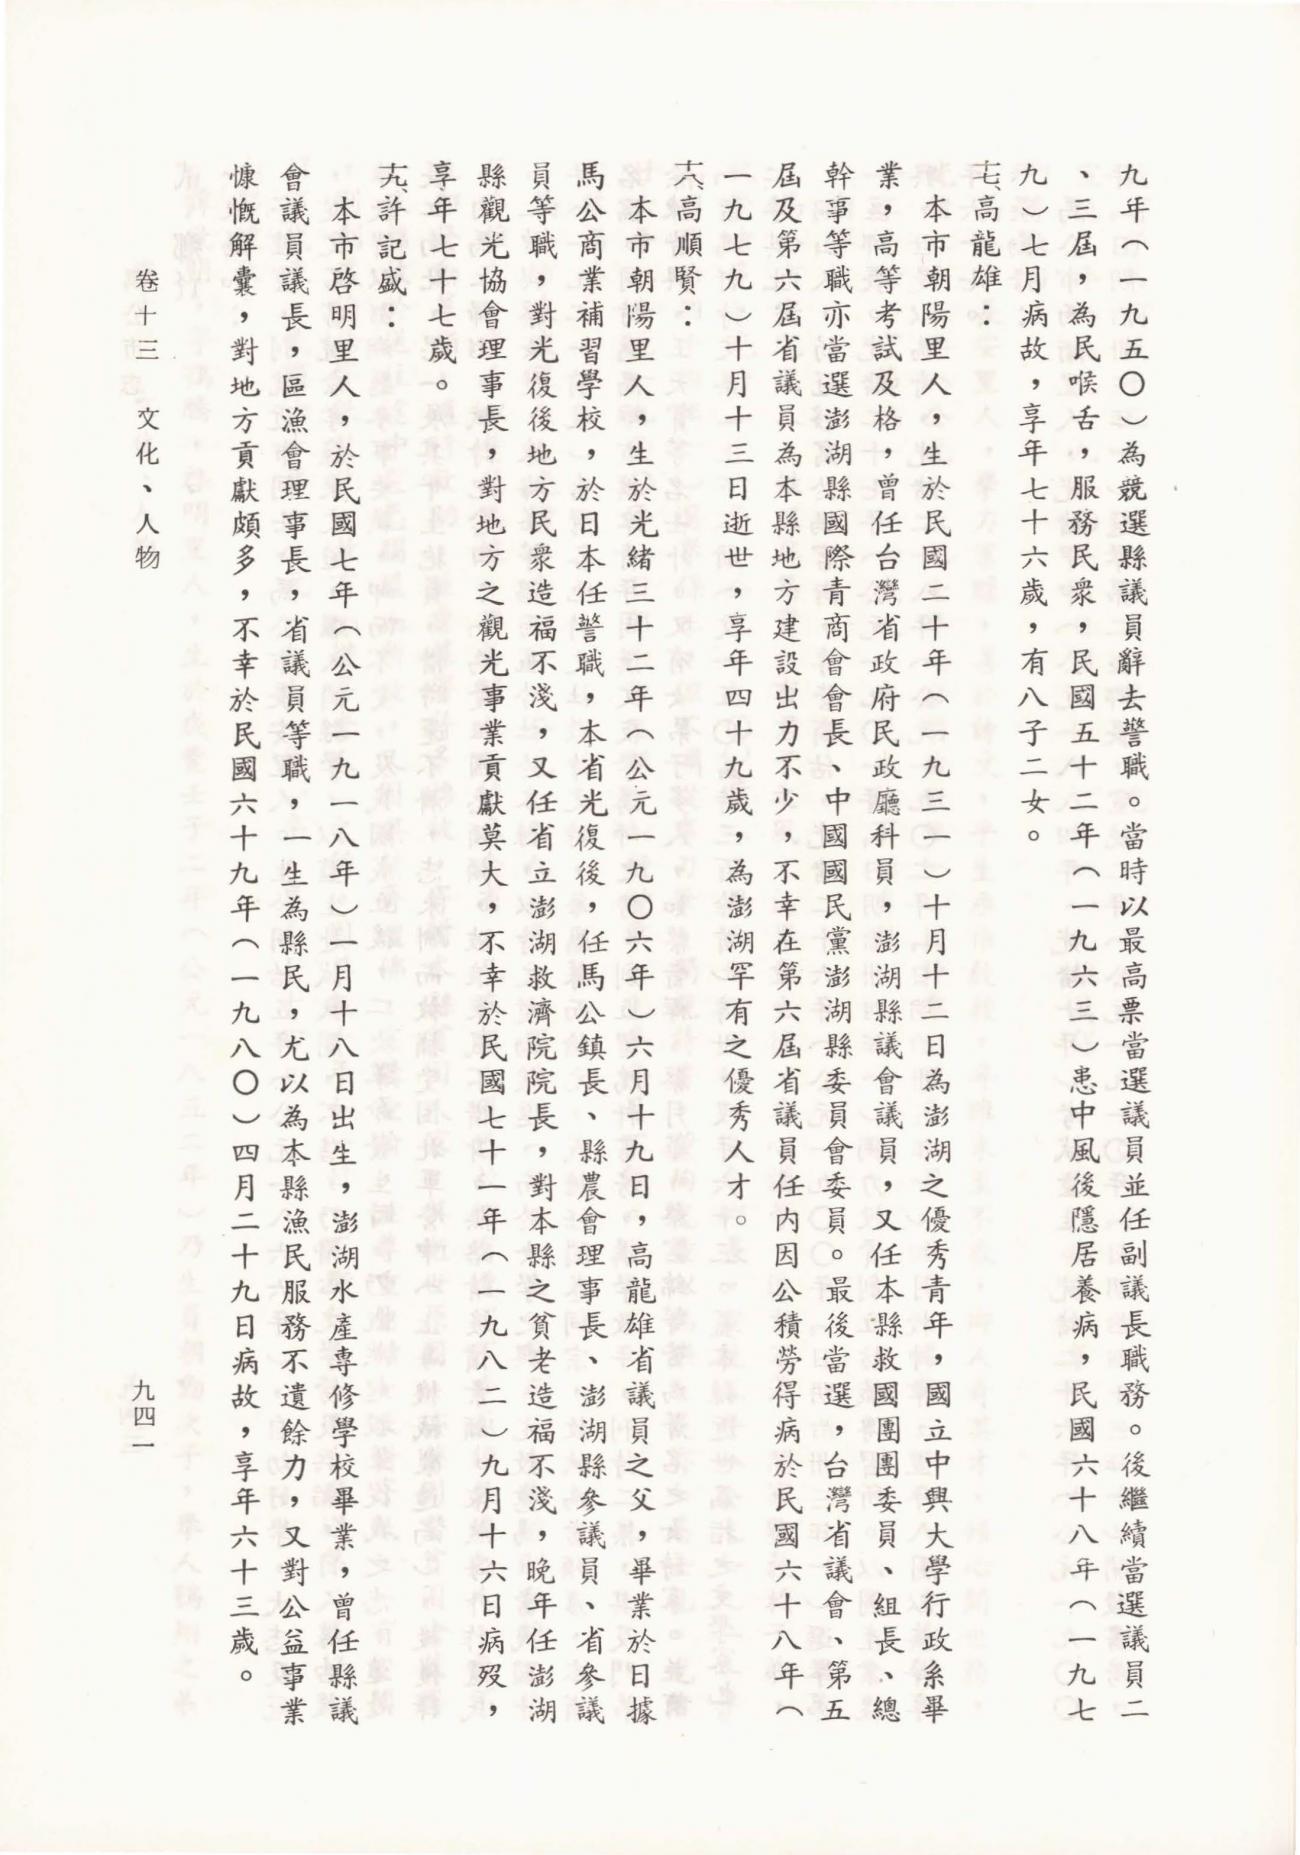 九年（一九五〇）為競選縣議員辭去警職。當時以最高票當選議員並任副議長職務。後繼續當選議員二
、三屆，為民喉舌，服務民衆，民國五十二年（一九六三）患中風後隱居養病，民國六十八年（一九七
九）七月病故，享年七十六歲，有八子二女。
十七、高龍雄：
本市朝陽里人，生於民國二十年（一九三一）十月十二日為澎湖之優秀青年，國立中興大學行政系畢
業，高等考試及格，曾任台灣省政府民政廳科員，澎湖縣議會議員，又任本縣救國團團委員、組長、總
幹事等職亦當選澎湖縣國際青商會會長、中國國民黨澎湖縣委員會委員。最後當選，台灣省議會、第五
屆及第六屆省議員為本縣地方建設出力不少，不幸在第六屆省議員任內因公積勞得病於民國六十八年（
一九七九）十月十三日逝世，享年四十九歲，為澎湖罕有之優秀人才。
十八、高順賢：
本市朝陽里人，生於光緒三十二年（公元一九〇六年）六月十九日，高龍雄省議員之父，畢業於日據
馬公商業補習學校，於日本任警職，本省光復後，任馬公鎮長、縣農會理事長、澎湖縣參議員、省參議
員等職，對光復後地方民衆造福不淺，又任省立澎湖救濟院院長，對本縣之貧老造福不淺，晚年任澎湖
縣觀光協會理事長，對地方之觀光事業貢獻莫大，不幸於民國七十一年（一九八二）九月十六日病歿，
享年七十七歲。
十九、許記盛：
本市啓明里人，於民國七年（公元一九一八年）一月十八日出生，澎湖水產專修學校畢業，曾任縣議
會議員議長，區漁會理事長，省議員等職，一生為縣民，尤以為本縣漁民服務不遺餘力，又對公益事業
慷慨解囊，對地方貢獻頗多，不幸於民國六十九年（一九八〇）四月二十九日病故，享年六十三歲。
卷十三 文化、人物
九四一